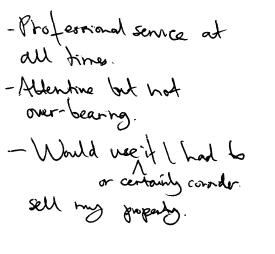 - Professional service at
all times.
- Attentive but not
over-bearing.
- Would use if I had to
or certainly consider.
sell my property.